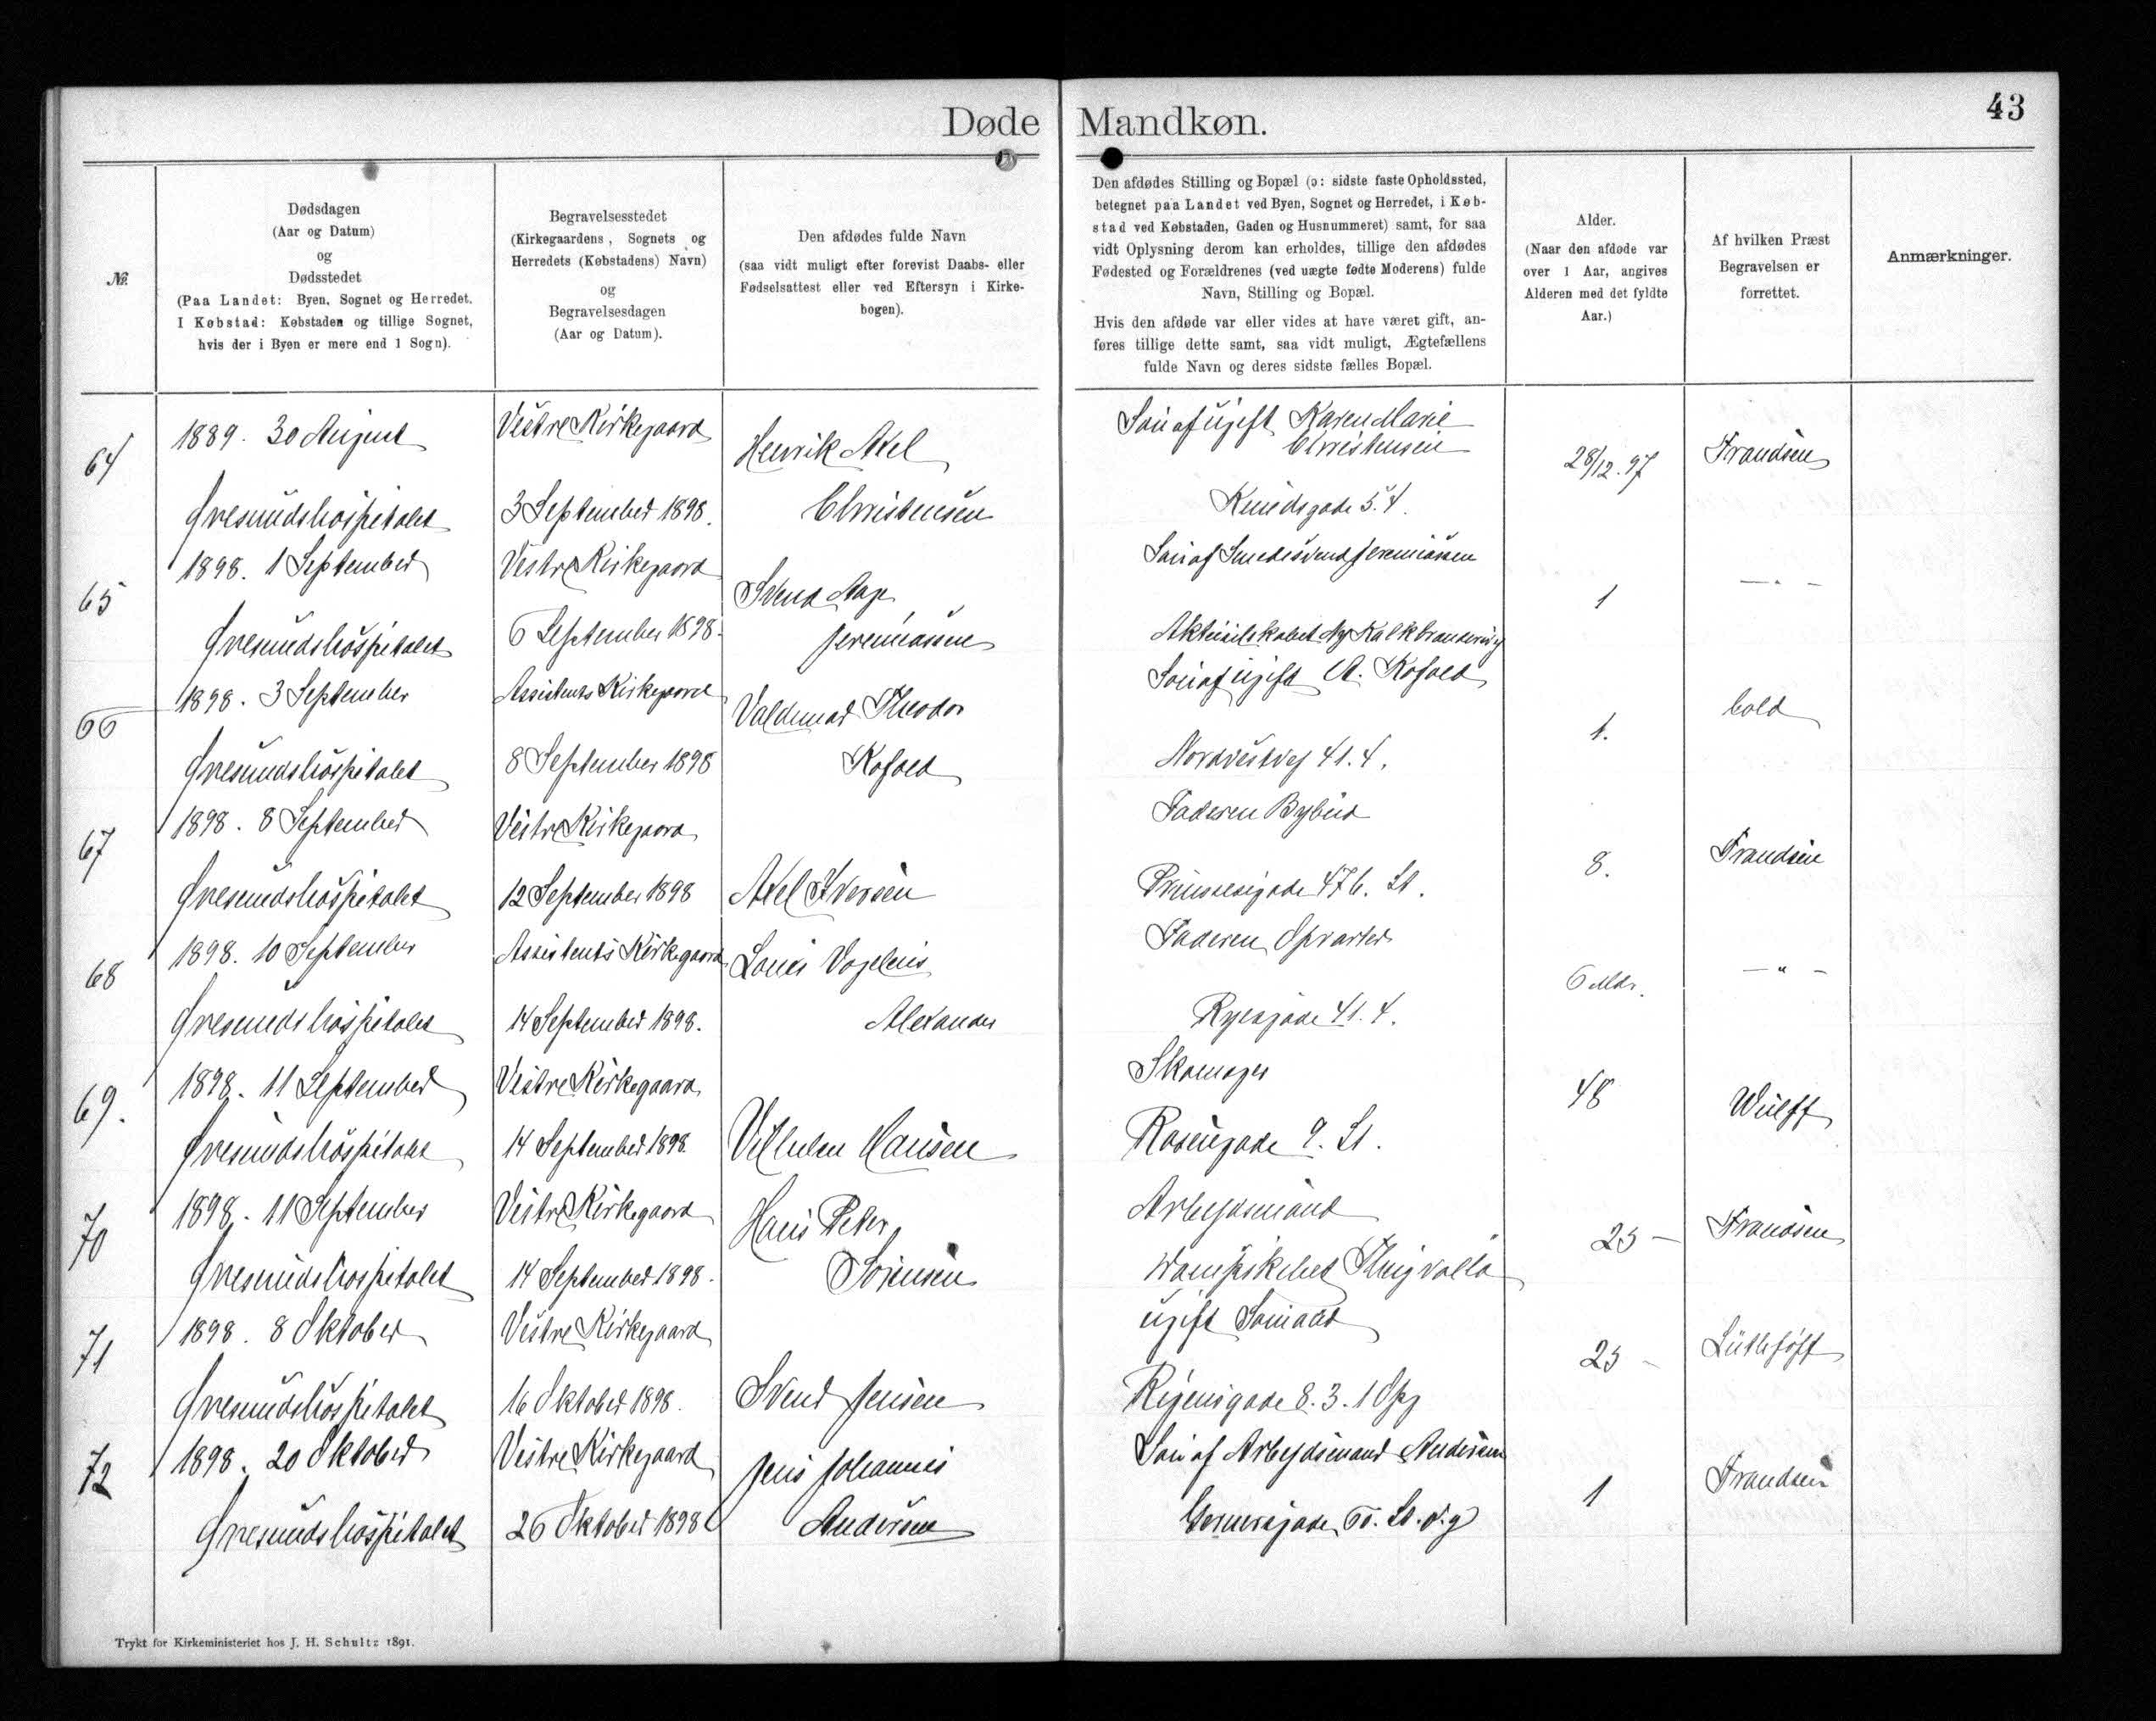 Døde Mandkøn.
43
№.
Dødsdagen
(Aar og Datum)
og
Dødsstedet
(Paa Landet: Byen, Sognet og Herredet.
I Købstad: Købstaden og tillige Sognet,
hvis der i Byen er mere end 1 Sogn).
Begravelsesstedet
(Kirkegaardens, Sognets og
Herredets (Købstadens) Navn)
og
Begravelsesdagen
(Aar og Datum).
Den afdødes fulde Navn
(saa vidt muligt efter forevist Daabs- eller
Fødselsattest eller ved Eftersyn i Kirke-
bogen).
Den afdødes Stilling og Bopæl (ɔ: sidste faste Opholdssted,
betegnet paa Landet ved Byen, Sognet og Herredet, i Køb-
stad ved Købstaden, Gaden og Husnummeret) samt, for saa
vidt Oplysning derom kan erholdes, tillige den afdødes
Fødested og Forældrenes (ved uægte fødte Moderens) fulde
Navn, Stilling og Bopæl.
Hvis den afdøde var eller vides at have været gift, an-
føres tillige dette samt, saa vidt muligt, Ægtefællens
fulde Navn og deres sidste fælles Bopæl.
Alder.
(Naar den afdøde var
over 1 Aar, angives
Alderen med det fyldte
Aar.)
Af hvilken Præst
Begravelsen er
forrettet.
Anmærkninger.
64
1889. 30 August
Øresundshospitalet
Vestre Kirkegaard
3 September 1898.
Henrik Axel
Christensen
Søn af ugift Karen Marie
Christensen
Knudsgade 5.4.
28/12.97
Frandsen
65
1898. 1 September
Øresundshospitalet
Vestre Kirkegaard
6 September 1898.
Svend Aage
Jeremiassen
Søn af Smedesvend Jeremiassen
Aktieselskabet Ny Kalkbrænderivej
1
— " —
66
1898. 3 September
Øresundshospitalet
Assistents Kirkegaard
8 September 1898
Valdemar Theodor
Kofoed
Søn af ugift A. Kofoed
Nordvestvej 41.4.
1.
Cold
67
1898. 8 September
Øresundshospitalet
Vestre Kirkegaard
12 September 1898
Axel Iversen
Faderen Bybud
Prinsessegade 47b. St.
8.
Frandsen
68
1898. 10 September
Øresundshospitalet
Assistents Kirkegaard
14 September 1898.
Louis Vogelius
Alexander
Faderen Opvarter
Ryesgade 41.4.
6 Mdr.
— " —
69.
1898. 11 September
Øresundshospitalet
Vestre Kirkegaard
14 September 1898.
Vilhelm Hansen
Skomager
Rosengade 9. St.
48
Wulff
70
1898. 11 September
Øresundshospitalet
Vestre Kirkegaard
14 September 1898.
Hans Peter
Sørensen
Arbejdsmand
Dampskibet Thingvalla
25 —
Frandsen
71
1898. 8 Oktober
Øresundshospitalet
Vestre Kirkegaard
16 Oktober 1898.
Svend Jensen
ugift Sømand
Rigensgade 8.3. 1 Opg
25 -
72
1898. 20 Oktober
Øresundshospitalet
Vestre Kirkegaard
26 Oktober 1898
Jens Johannes
Andersen
Søn af Arbejdsmand Andersen
Gernersgade St.
1
Frandsen
Trykt for Kirkeministeriet hos J. H. Schultz 1891.